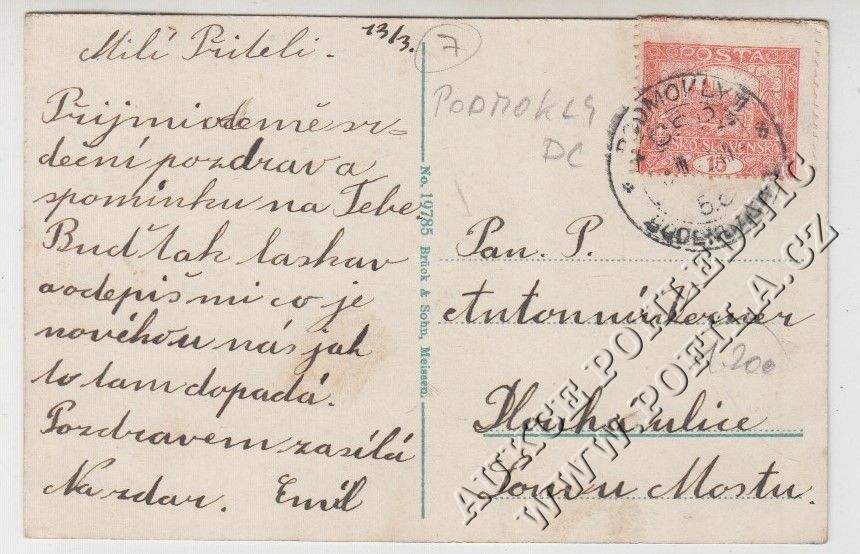 Milí Příteli. 13/3. 7
Přijmiodemě sr-
dečnípozdrav a
spomínku na Tebe.
Buď tak laskav
a odepiš mi co je
nového u nás jak
to tam dopadá.
Pozdravem zasílá
Nazdar. Emil
No. 19785 Brück & Sohn, Meissen.
PODMOKLY
DC
POŠTA
ČESKO-SLOVENSKÁ
15
PODMOKLY
BODENBACH
Pan. P.
Antonnín
1.200
Dlouhá ulice
Mostu.
AUKCE POHLEDNIC
WWW.POHLA.CZ